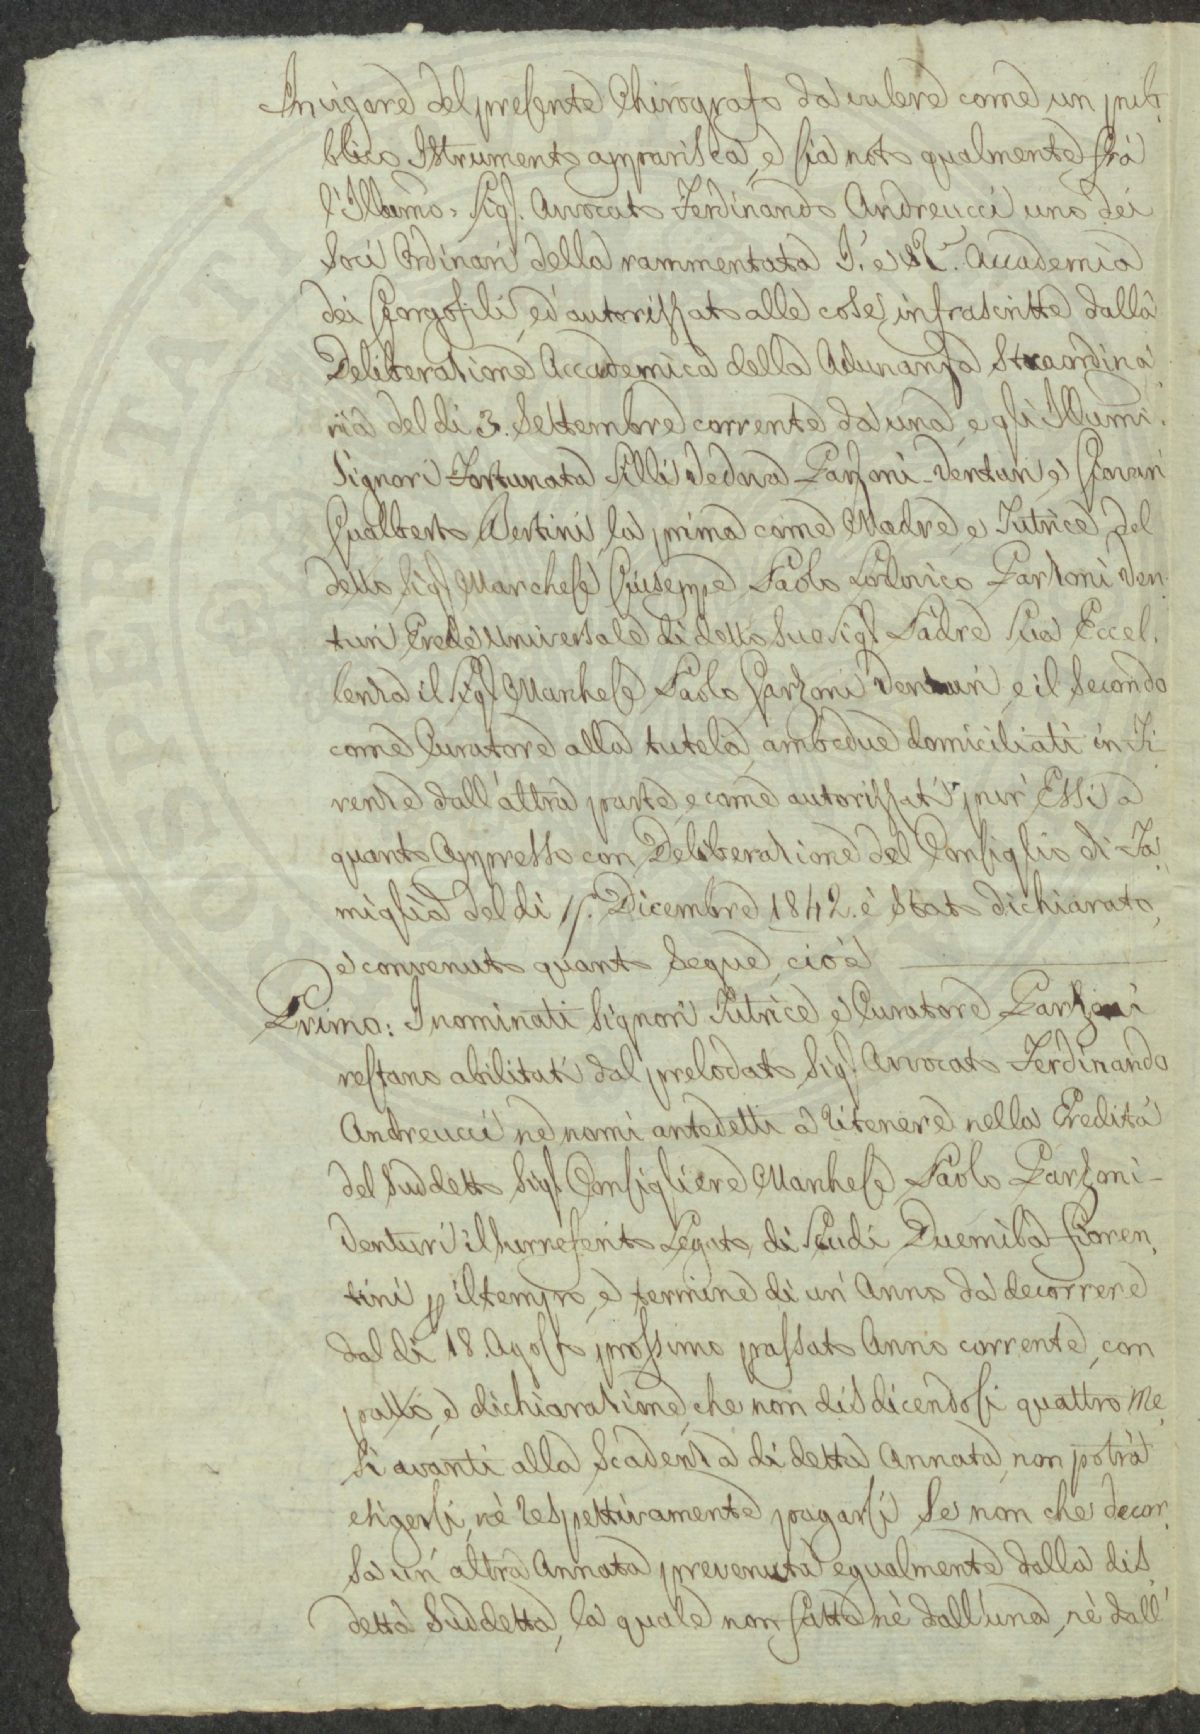 In vigore del presente Chirografo da valere come un pub-
blico Istrumento apparisca, e sia noto qualmente frà
l'Illumo: Sigr. Avvocato Ferdinando Andreucci uno dei
Soci Ordinari della rammentata I. e R. Accademia
dei Georgofili, ed autorizzato alle cose infrascritte dalla
Deliberazione Accademica della Adunanza Straordina-
ria del dì 3. Settembre corrente da una, e gli Illumi.
Signori Fortunata Silli Vedova Garzoni-Venturi, e Giovan
Gualberto Bertini, la prima come Madre, e Tutrice del
detto Sigr. Marchese Giuseppe Paolo Lodovico Garzoni Ven-
turi Erede Universale di detto suo Sigr. Padre Sua Eccel-
lenza il Sigr. Marchese Paolo Garzoni Venturi, e il Secondo
come Curatore alla tutela, ambedue domiciliati in Fi-
renze dall'altra parte, e come autorizzati pur' Essi a
quanto Appresso con Deliberazione del Consiglio di Fa-
miglia del dì 15. Dicembre 1842. è stato dichiarato,
e convenuto quanto segue, cioè
Primo: I nominati Signori Tutrice e Curatore Garzoni
restano abilitati dal prelodato Sigr. Avvocato Ferdinando
Andreucci ne nomi antedetti a ritenere nella Eredità
del Suddetto Sigr. Consigliere Marchese Paolo Garzoni-
Venturi il surriferito Legato di Scudi Duemila fioren-
tini p il tempo, e termine di un' Anno da decorrere
dal dì 18. Agosto prossimo passato Anno corrente, con
patto, e dichiarazione, che non disdicendosi quattro Me-
si avanti alla Scadenza di detta Annata, non potrà
esigersi, nè respettivamente pagarsi se non che decor-
sa un' altra Annata prevenuta egualmente dalla dis
detta Suddetta, la quale non fatta nè dall'una, nè dall'